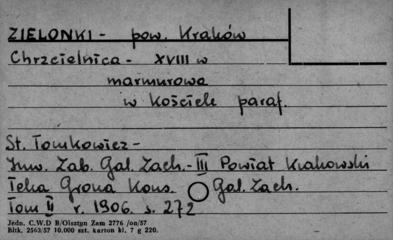 ZIELONKI - pow. Kraków
Chrzcielnica - XVIII w
marmurowa
w kościele paraf.
St. Tomkowicz -
Inw. Zab. Gal. Zach. - III Powiat Krakowski
Teka Grona Kons. Gal. Zach.
Tom II r. 1906 s. 272
Jedn. C.W.D B/Olsztyn Zam 2776 /on/57
Bltk. 2563/57 10.000 szt. karton kl. 7 g 220.